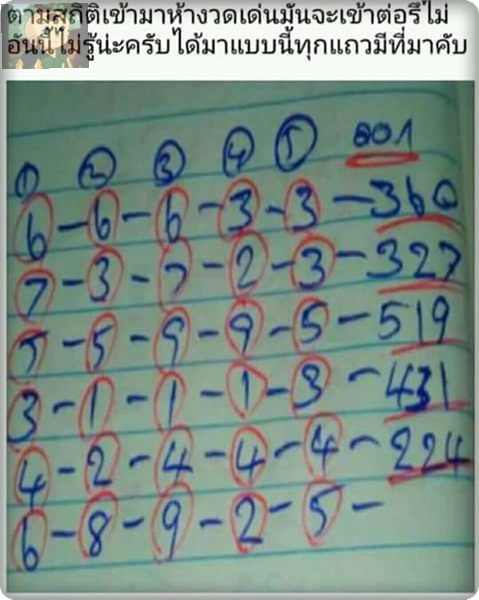 ตามสถิติเข้ามาห้างวดเด่นมันจะเข้าต่อรึไม่
อันนี้ไม่รู้น่ะครับได้มาแบบนี้ทุกแถวมีที่มาคับ
① ② ③ ④ ⑤
6-6-6-3-3-360
7-3-7-2-3-327
5-5-9-9-5-519
3-1-1-1-3-431
4-2-4-4-4-224
6-8-9-2-5-